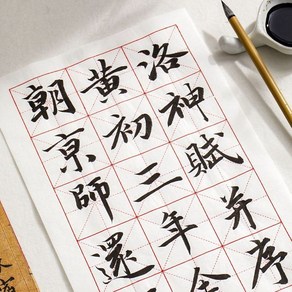 洛神賦并序
黄初三年余
朝京師還